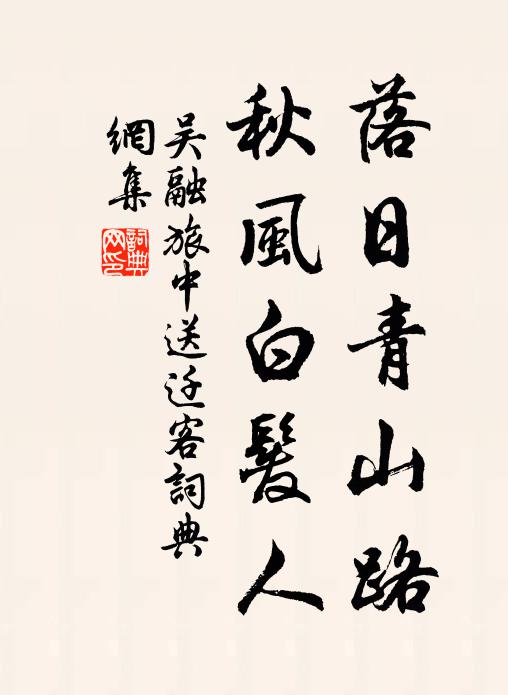 落日青山路
秋風白髮人
吳融旅中送迁客詞典
網集
詞典
网印